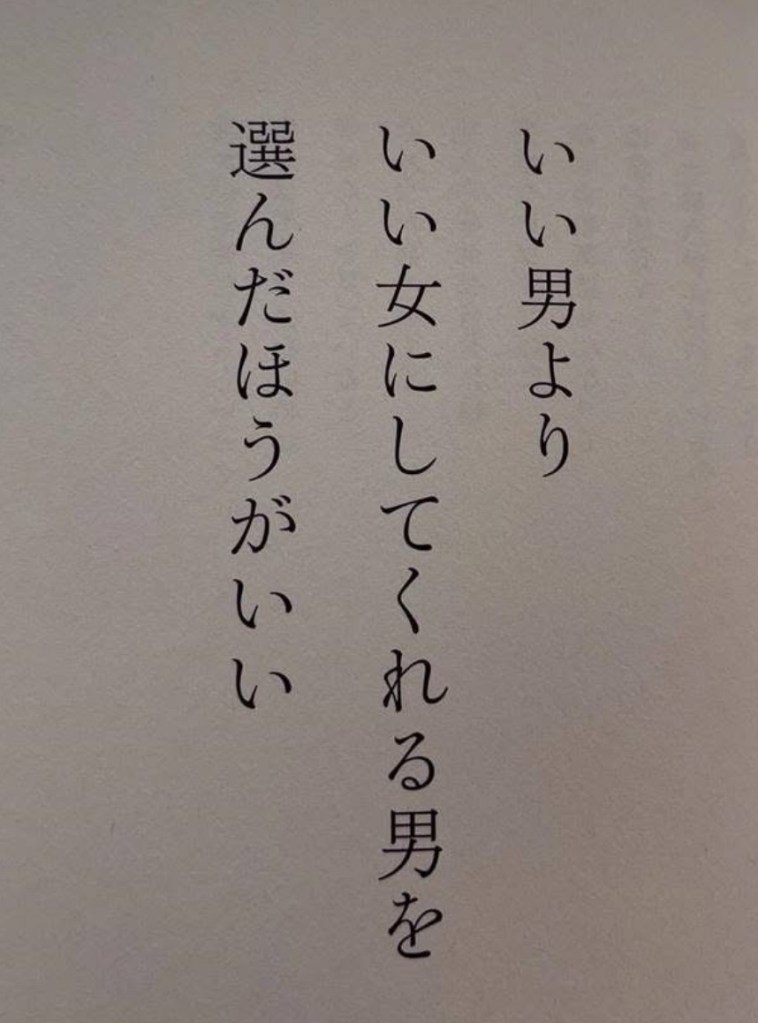 いい男より
いい女にしてくれる男を
選んだほうがいい